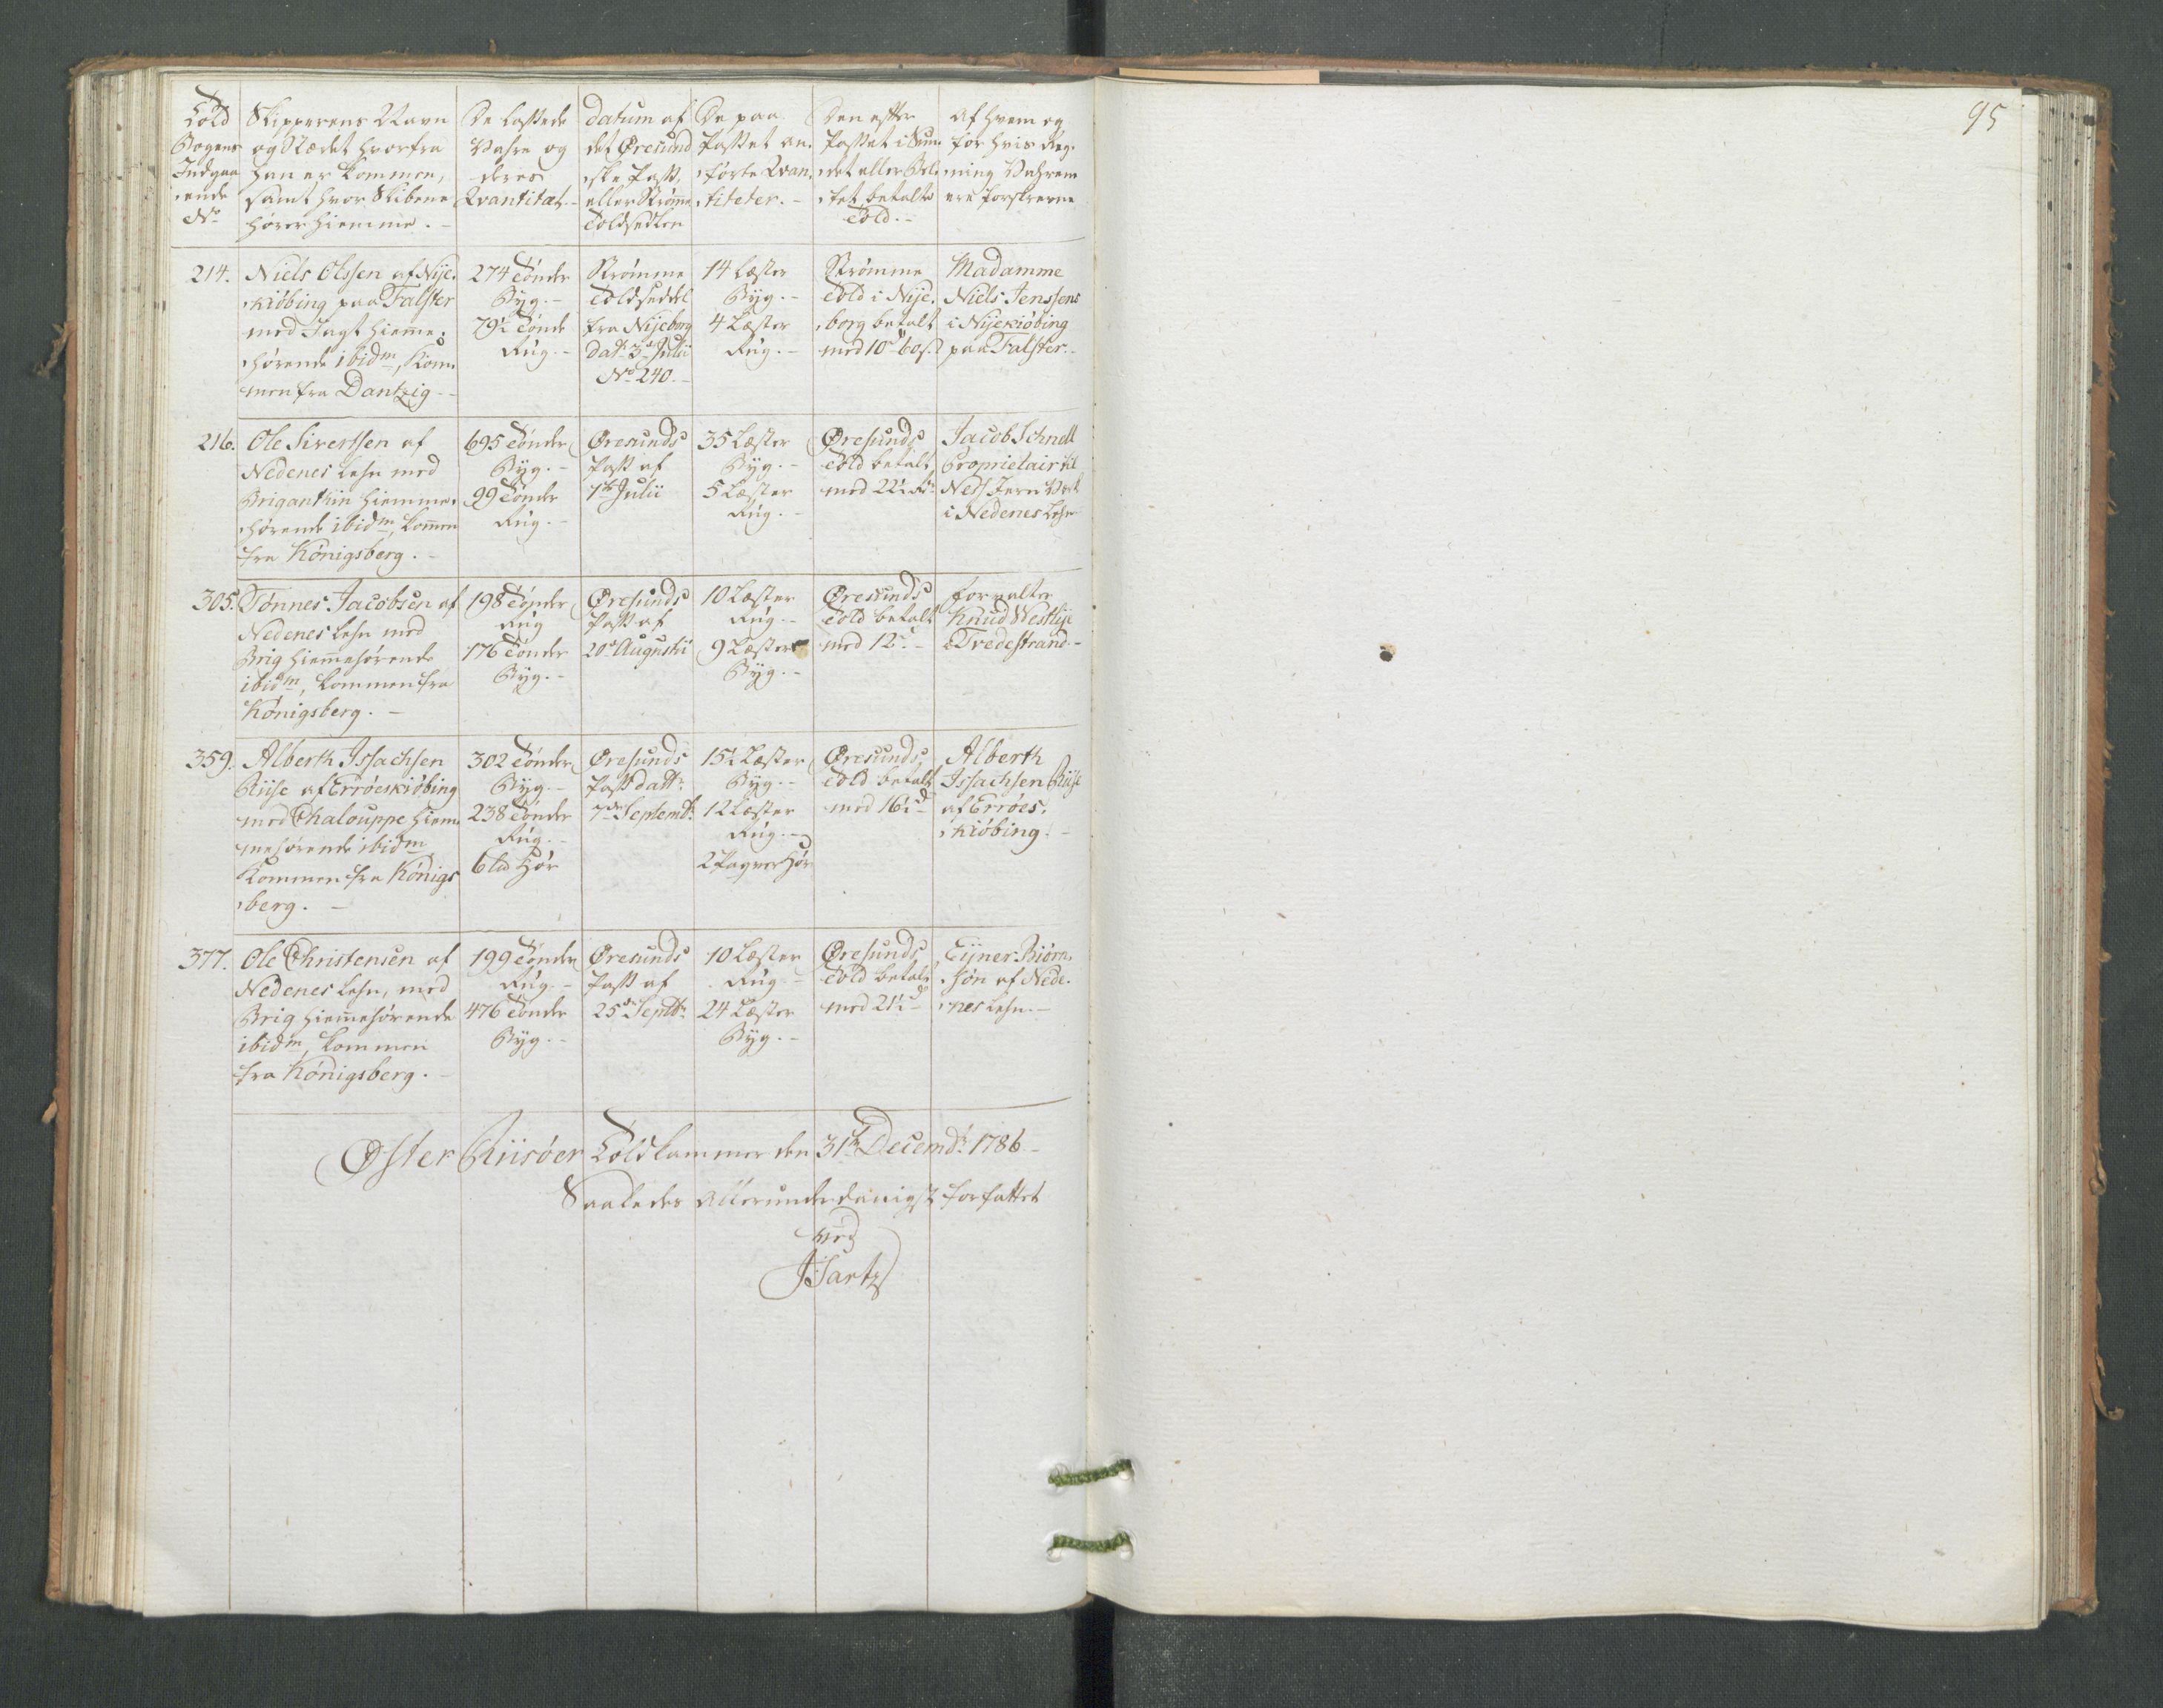 95
Told
Bogens
Indgaa
ende
No
Skipperens Navn
og Stædet hvorfra
han er kommen,
samt hvor Skibene
hører hiemme.
De lossede
Vahre og
deres
Qvantitæt.
Datum af
det Øresund
ske Pass,
eller Strøm
Toldsedlen
De paa
Passet an-
førte Qvan-
titeter.
Den efter
Passet i Sun
det eller Bel
tet betalte
Told.
Af hvem og
for hvis Reg-
ning Vahrene
ere forskrevne
214.
Niels Olssen af Nije-
kiøbing paa Falster
med Jagt hiemme-
hørende ibidm, kom
men fra Dantzig
274 Tønder
Byg.
79½ Tønde
Rug.
Strømme
Toldseddel
fra Nijeborg
dat. 3de Julii
No 240.
14 Læster
Byg.
4 Læster
Rug.
Strømme
Told i Nije-
borg betalt
med 10 60 s.
Madamme
Niels Jenssens
i Nijekiøbing
paa Falster.
216.
Ole Sivertsen af
Nedenes Lehn med
Brigantin hiemme-
hørende ibidm, kommen
fra Königsberg.
695 Tønder
Byg.
99 Tønder
Rug.
Øresunds
Pass af
7de Julii
35 Læster
Byg.
5 Læster
Rug.
Øresunds
Told betalt
med 22½ rd
Jacob Schnell
Proprietair til
Nes Jern Værk
i Nedenes Lehn
305.
Tønnes Jacobsen af
Nedenes Lehn med
Brig hiemmehørende
ibidm, kommen fra
Königsberg.
198 Tønder
Rug
176 Tønder
Byg.
Øresunds
Pass af
20de Augusti
10 Læster
Rug.
9 Læster
Byg.
Øresunds
Told betalt
med 12 rd
Forvalter
Knud Westlije
Tvedestrand.
359.
Alberth Issachsen
Riise af Erröeskiöbing
med Chalouppe hiem
mehørende ibidm
kommen fra Königs
berg.
302 Tønder
Byg.
238 Tønder
Rug.
6 Lld Hør
Øresunds
Pass datt.
7de Septembr
15½ Læster
Byg.
12 Læster
Rug.
2 Paquer Hør
Øresunds
Told betalt
med 16½ rd
Alberth
Issachsen Riise
af Erröes-
kiöbing.
377.
Ole Christensen af
Nedenes Lehn, med
Brig hiemmehørende
ibidm, kommen
fra Königsberg.
199 Tønder
Rug.
476 Tønder
Byg.
Øresunds
Pass af
25de Septbr
10 Læster
Rug.
24 Læster
Byg.
Øresunds
Told betalt
med 21½ rd
Eijner Biörn-
sön af Nede-
nes Lehn.
Øster Riisöer Toldkammer den 31te Decembr 1786
Saaledes allerunderdanigst forfattet
ved